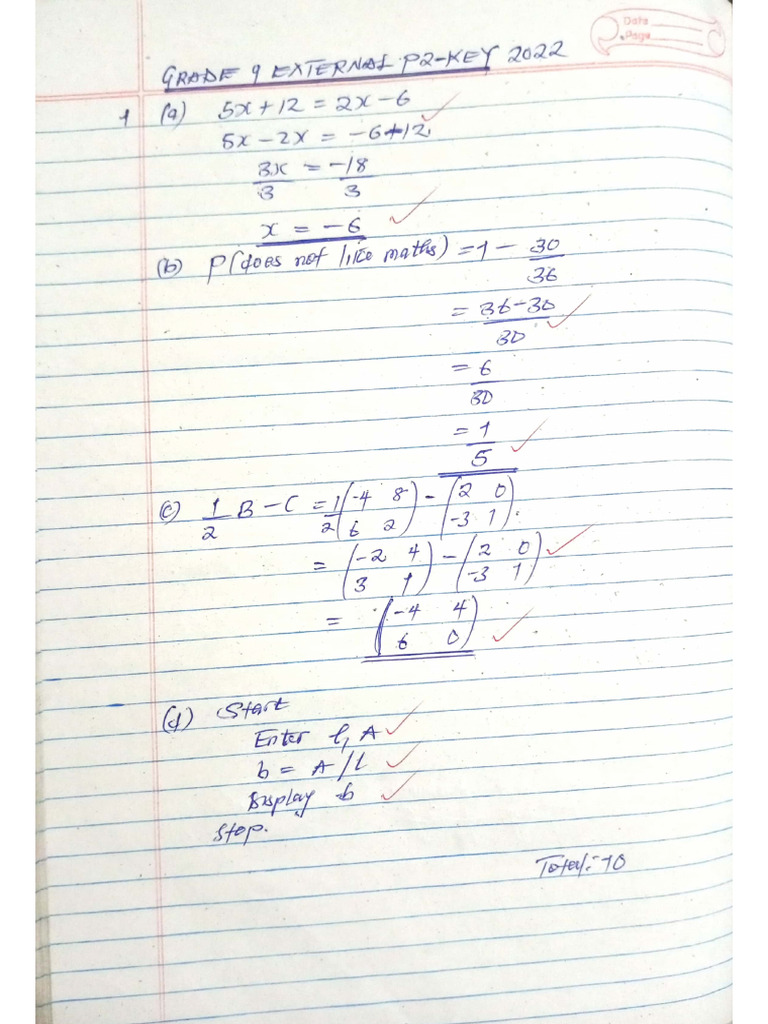 Date
Page
GRADE 9 EXTERNAL P2-KEY 2022
1 (a) 5x + 12 = 2x - 6
5x - 2x = -6 + 12
3x/3 = -18/3
x = -6
(b) P(does not like maths) = 1 - 30/36
= 36-30/30
= 6/30
= 1/5
(c) 1/2 B - C = 1/2 (-4 8; 6 2) - (2 0; -3 1).
= (-2 4; 3 1) - (2 0; -3 1)
= (-4 4; 6 0)
(d) Start
Enter l, A
b = A/l
Display b
Stop.
Total:- 10